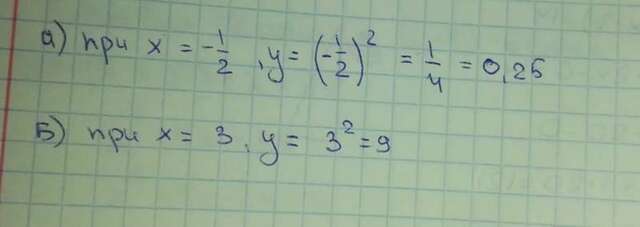 а) при x = -1/2, y = (-1/2)² = 1/4 = 0,25
Б) при x = 3, y = 3² = 9